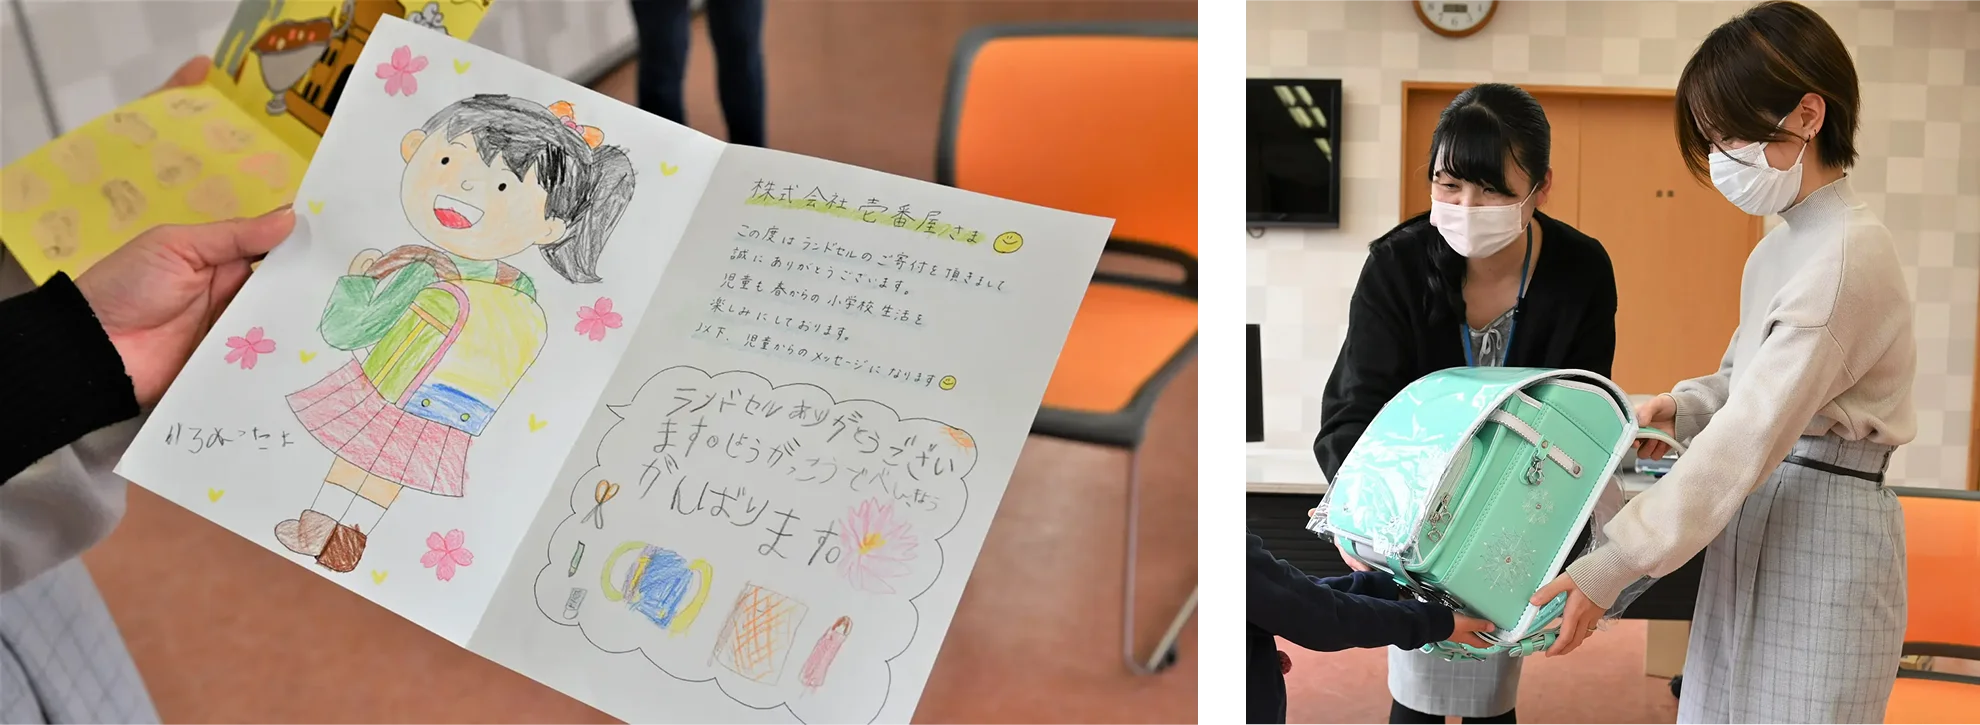 いろぬったよ
株式会社壱番屋さま
この度はランドセルのご寄付を頂きまして
誠にありがとうございます。
児童も春からの小学校生活を
楽しみにしております。
以下、児童からのメッセージになります
ランドセルありがとうござい
ます。しょうがっこうでべんきょう
がんばります。